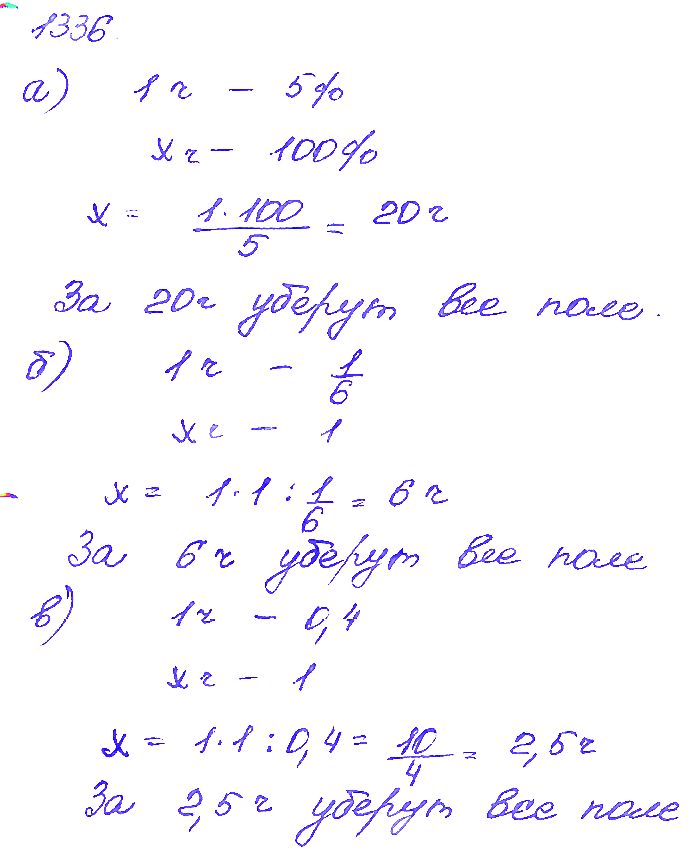 1336.
а) 1 ч – 5%
х ч – 100%
х = 1·100/5 = 20 ч
За 20 ч уберут все поле.
б) 1 ч – 1/6
х ч – 1
х = 1·1 : 1/6 = 6 ч
За 6 ч уберут все поле
в) 1 ч – 0,4
х ч – 1
х = 1·1 : 0,4 = 10/4 = 2,5 ч
За 2,5 ч уберут все поле